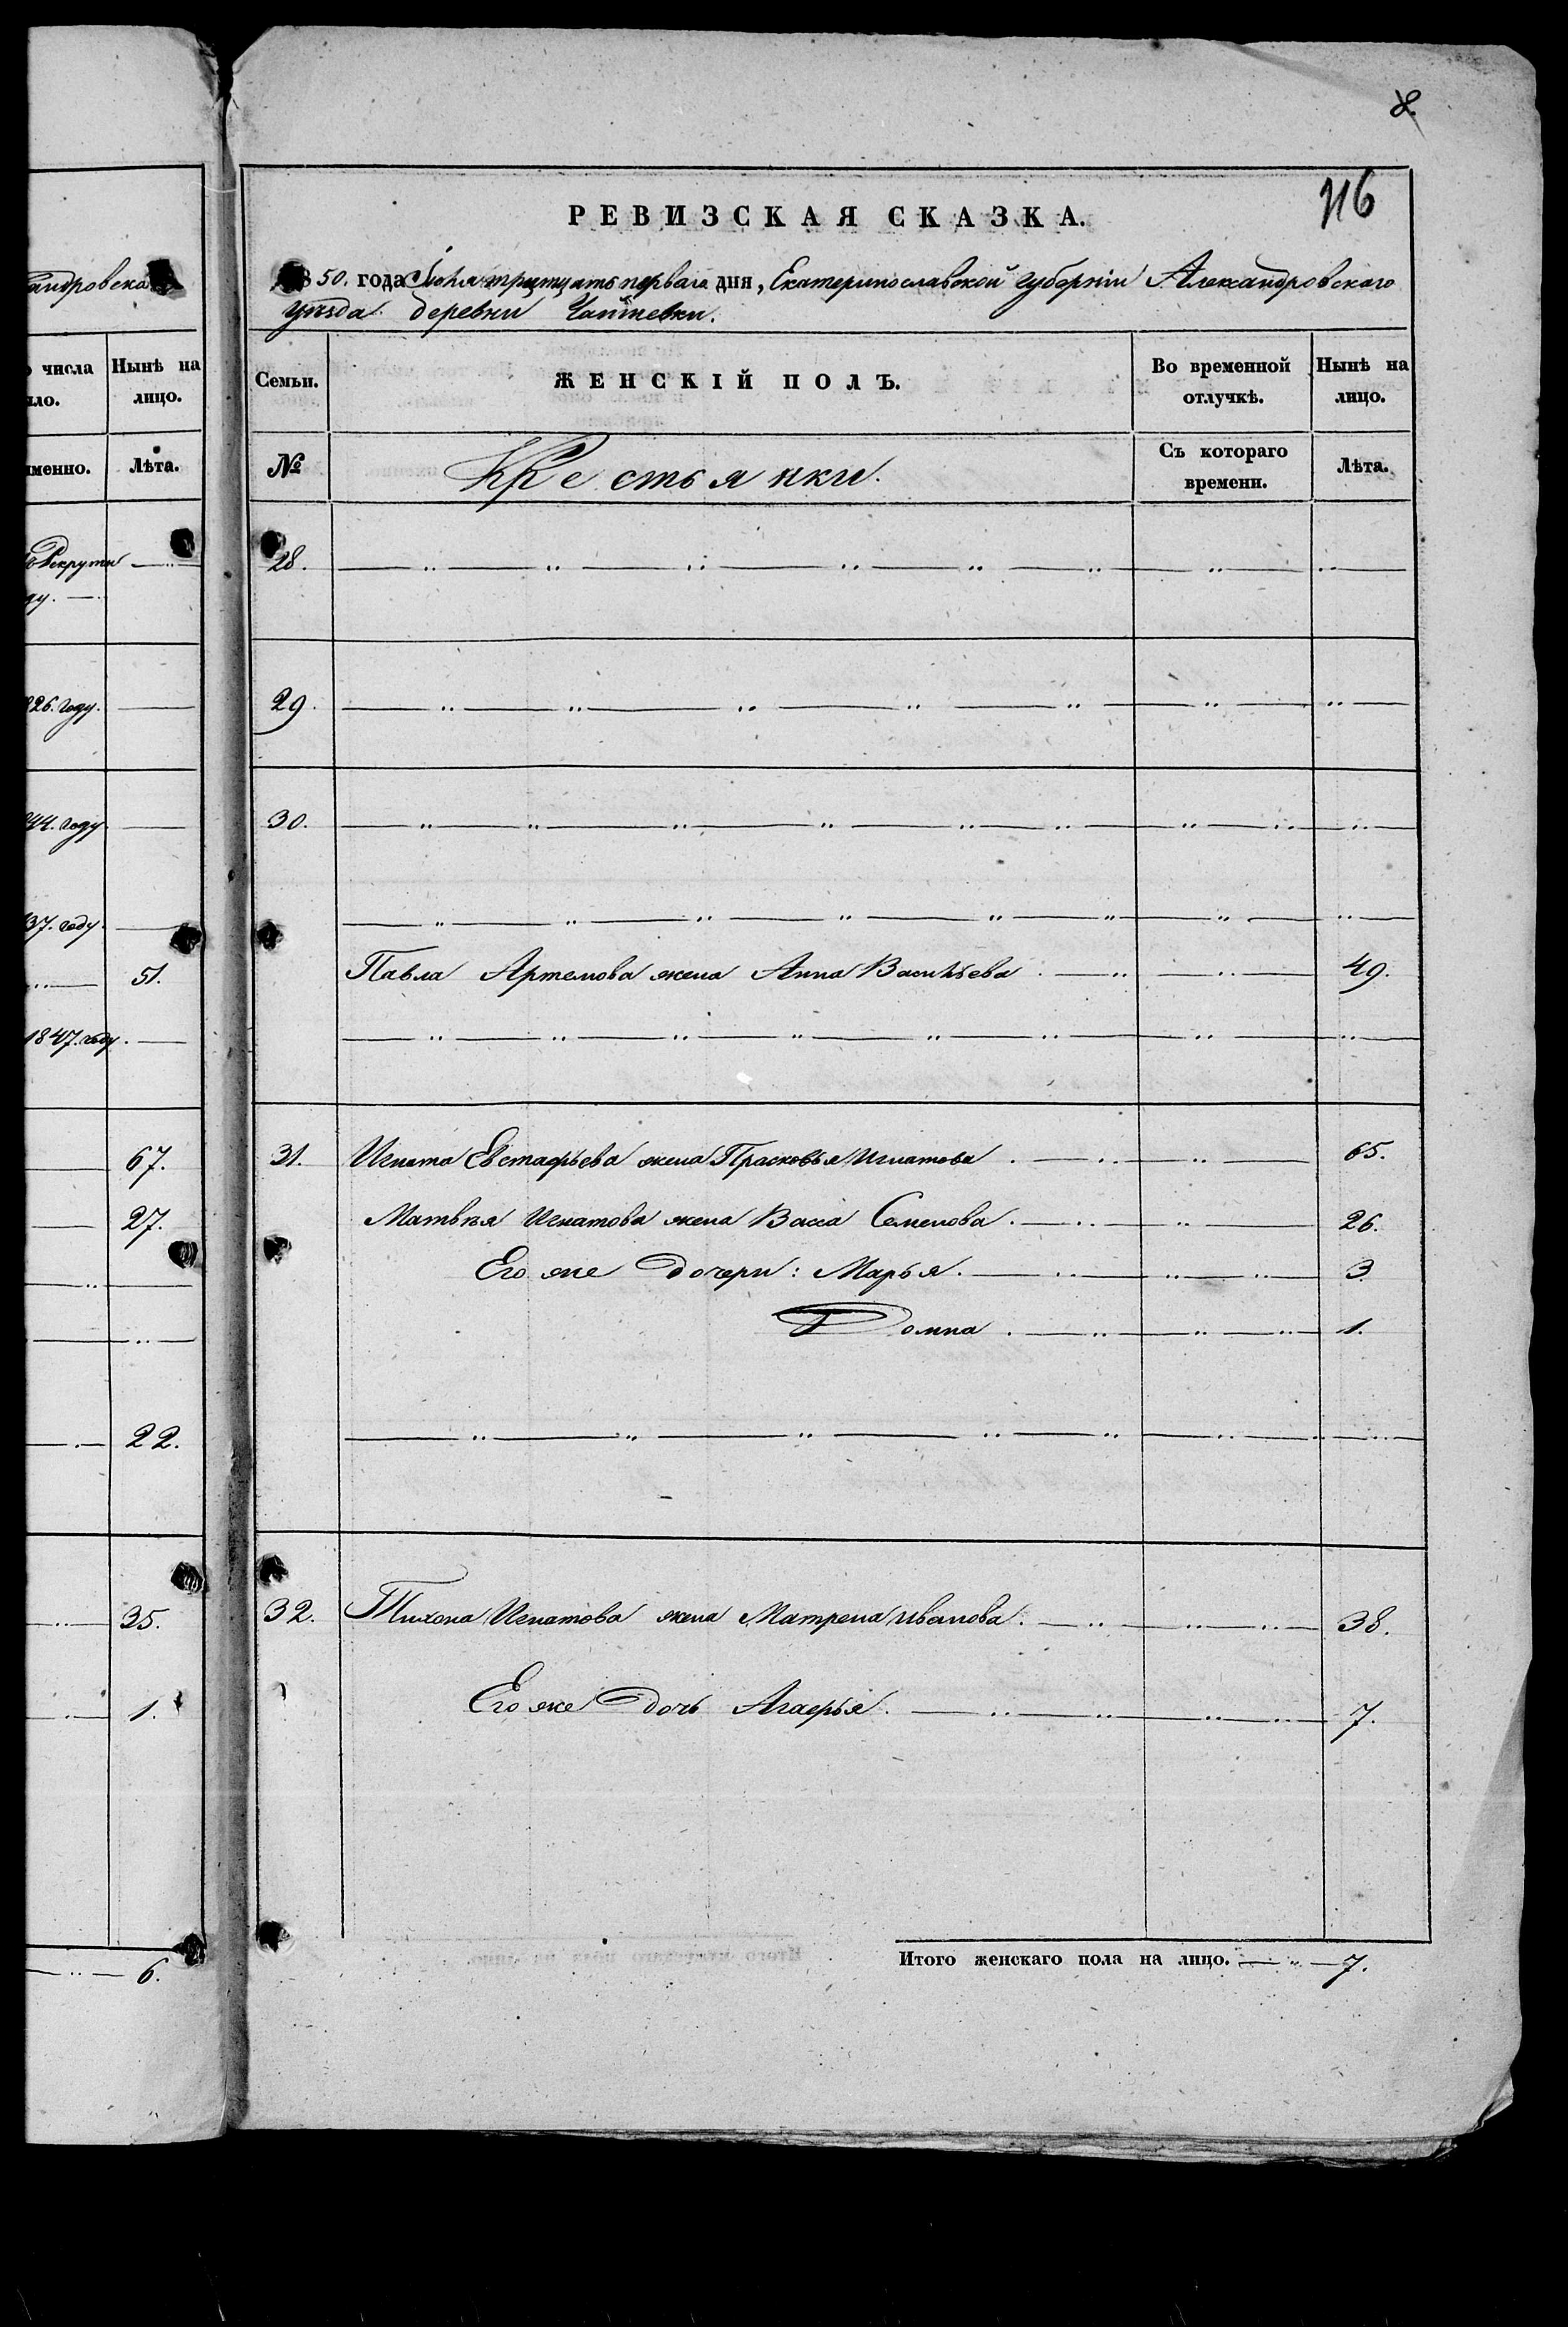 андровска
числа Нынѣ на
ло. лицо.
именно. Лѣта.
Рекруты
ду.
826. году.
844. году
37. году.
51.
1847. году.
67.
27.
22.
35.
1.
6.
8.
116
РЕВИЗСКАЯ СКАЗКА.
850. года Іюля тритцать перваго дня, Екатеринославской губерніи Александровскаго
уѣзда деревни
Семьи. ЖЕНСКІЙ ПОЛЪ. Во временной Нынѣ на
отлучкѣ. лицо.
№ Крестьянки. Съ котораго Лѣта.
времени.
28.
29.
30.
Павла Артемова жена Анна Васильева 49.
31. Игната Евстафьева жена Прасковья Игнатова 65.
Матвѣя Игнатова жена Васса Семенова 26.
Его же дочери: Марья. 3
Домна 1.
32. Тихона Игнатова жена Матрена Иванова. 38.
Его же дочь Агафья. 7.
Итого женскаго пола на лицо. 7.